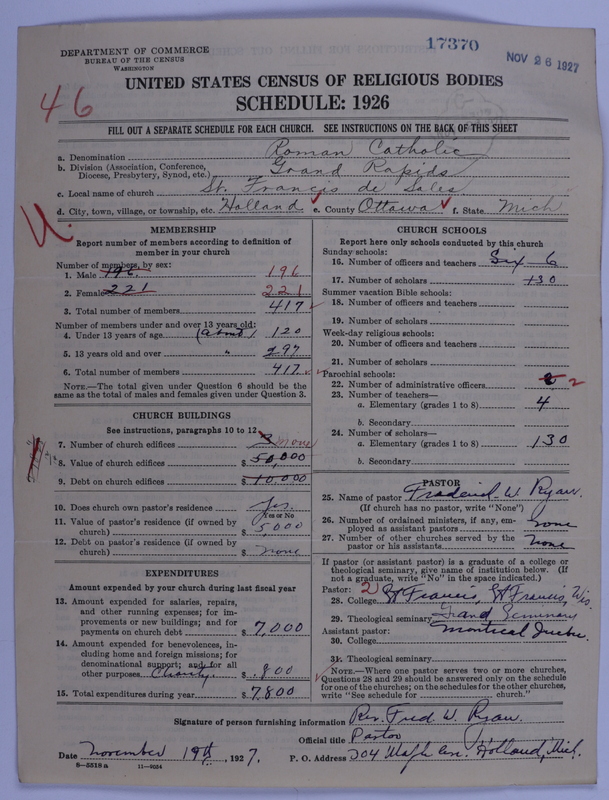 17370
NOV 26 1927
DEPARTMENT OF COMMERCE
BUREAU OF THE CENSUS
WASHINGTON
UNITED STATES CENSUS OF RELIGIOUS BODIES
SCHEDULE: 1926
46
FILL OUT A SEPARATE SCHEDULE FOR EACH CHURCH. SEE INSTRUCTIONS ON THE BACK OF THIS SHEET
a. Denomination Roman Catholic
b. Division (Association, Conference, Diocese, Presbytery, Synod, etc.) Grand Rapids
c. Local name of church St. Francis de Sales
d. City, town, village, or township, etc. Holland e. County Ottawa f. State Mich
MEMBERSHIP
Report number of members according to definition of
member in your church
Number of members, by sex:
1. Male 196 196
2. Female 221 221
3. Total number of members 417
Number of members under and over 13 years old:
4. Under 13 years of age (about) 120
5. 13 years old and over " 297
6. Total number of members 417
NOTE.—The total given under Question 6 should be
same as the total of males and females given under Question 3.
CHURCH BUILDINGS
See instructions, paragraphs 10 to 12
7. Number of church edifices 3 none
8. Value of church edifices $ 50,000
9. Debt on church edifices $ 10,000
10. Does church own pastor's residence Yes
Yes or No
11. Value of pastor's residence (if owned by
church) $ 5,000
12. Debt on pastor's residence (if owned by
church) $ none
EXPENDITURES
Amount expended by your church during last fiscal year
13. Amount expended for salaries, repairs,
and other running expenses; for im-
provements or new buildings; and for
payments on church debt $ 7,000
14. Amount expended for benevolences, in-
cluding home and foreign missions; for
denominational support; and for all
other purposes Charity $ 800
15. Total expenditures during year $ 7800
CHURCH SCHOOLS
Report here only schools conducted by this church
Sunday schools:
16. Number of officers and teachers Six 6
17. Number of scholars 130
Summer vacation Bible schools:
18. Number of officers and teachers
19. Number of scholars
Week-day religious schools:
20. Number of officers and teachers
21. Number of scholars
Parochial schools:
22. Number of administrative officers 2
23. Number of teachers—
a. Elementary (grades 1 to 8) 4
b. Secondary
24. Number of scholars—
a. Elementary (grades 1 to 8) 130
b. Secondary
PASTOR
25. Name of pastor Frederick W. Ryan
(If church has no pastor, write "None")
26. Number of ordained ministers, if any, em-
ployed as assistant pastors none
27. Number of other churches served by the
pastor or his assistants none
If pastor (or assistant pastor) is a graduate of a college or
theological seminary, give name of institution below. (If
not a graduate, write "No" in the space indicated.)
Pastor: 2
28. College St Francis, St Francis, Wis.
29. Theological seminary Grand Seminary
Assistant pastor: Montreal Quebec
30. College
31. Theological seminary
NOTE.—Where one pastor serves two or more churches,
Questions 28 and 29 should be answered only on the schedule
for one of the churches; on the schedules for the other churches,
write "See schedule for church."
Signature of person furnishing information Rev. Fred W. Ryan
Official title Pastor
Date November 19th, 1927. P. O. Address 204 Maple Ave. Holland, Mich.
8—5518 a 11—9634